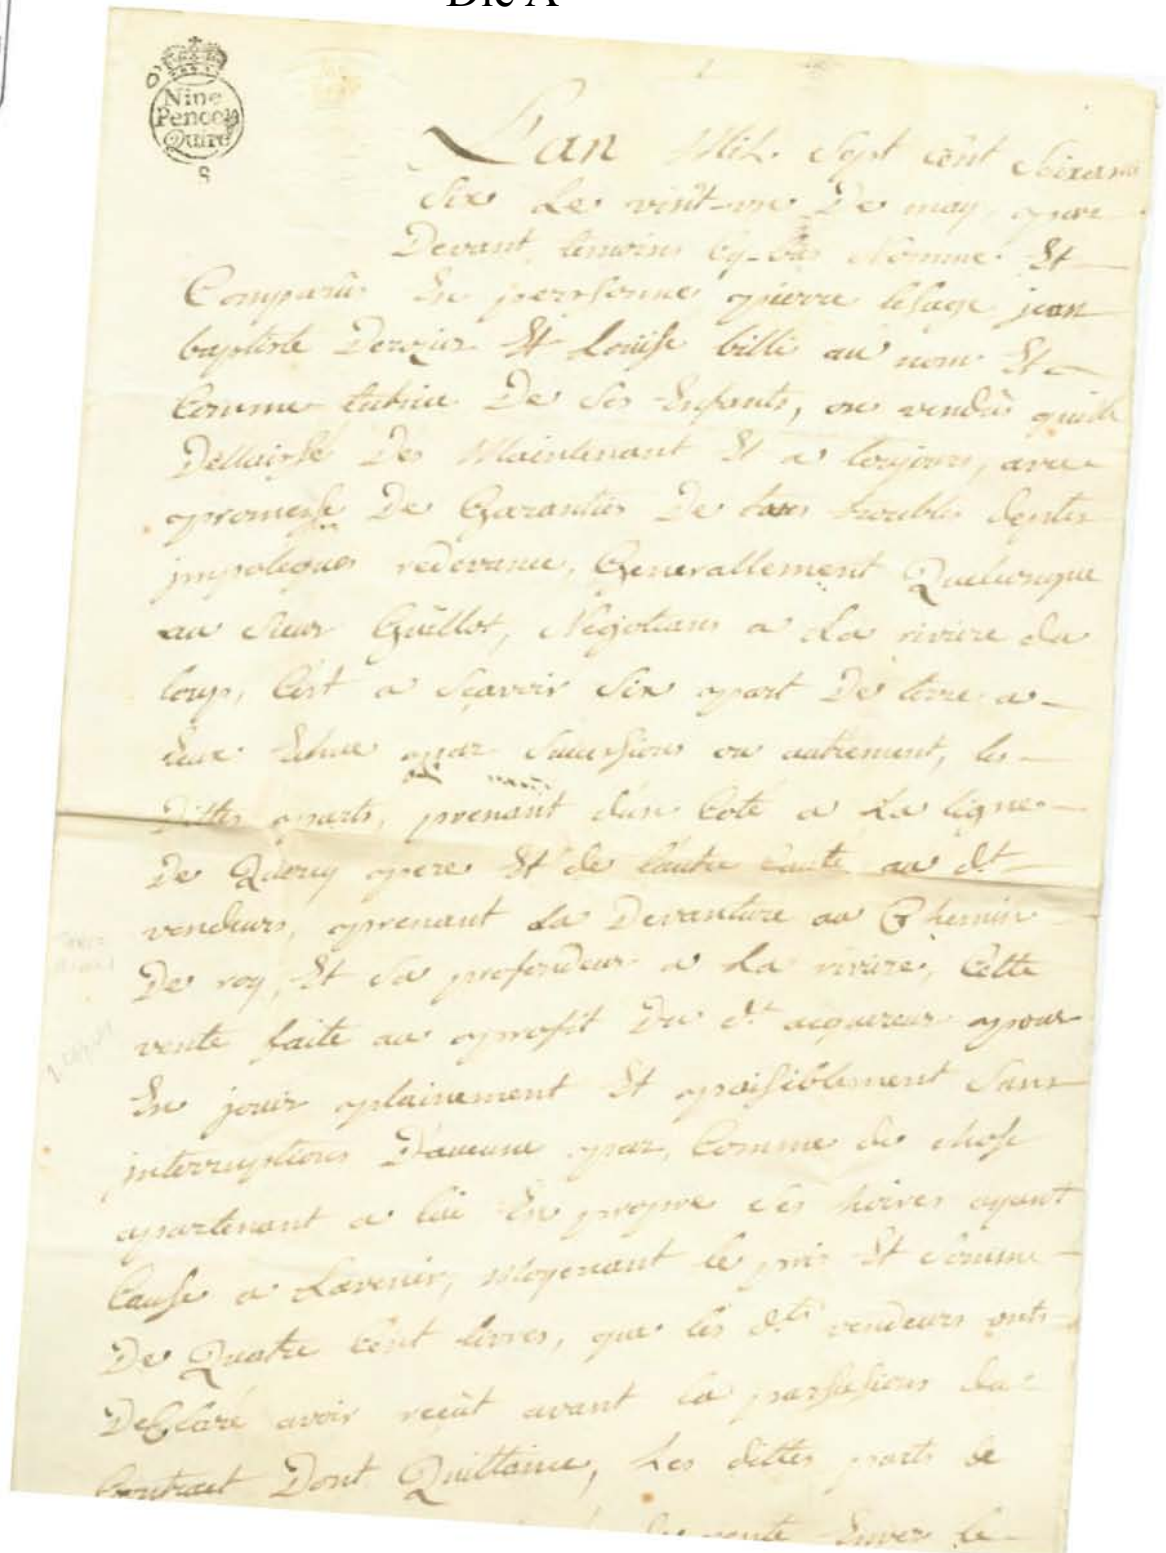 Die A
Nine
Pence pr
Quire
S
L'an Mil Sept cent Soixante
Six Le vint-un De may, par
Devant temoins Cy-bas Nommé Et
Comparûs En perrsonne pierre lesage jean
baptiste Derozier Et Loüise billi au nom Et
Comme tutrice De Ses Enfants, on vendûs quitté
Dellaissé Des Maintenant Et a toujours, avec
promesse De Garanties De tous troubles deptes
jmpoteques redevance, Generallement Quelconque
au Sieur Guillot, Negotians a La riviere du
loup, C'est a Scavoir Six part De terre a
Eux Echue par Successions ou autrement, les
Dittes parts, prenant d'un Coté a La ligne
De Quercy pere Et de l'autre Coté au dt
vendeurs, prenant La Devanture au Chemin
De roy, Et Sa profondeur a La riviere, Cette
vente faite au profit Du dt acquereur pour
En jouir plainement Et paisiblement Sans
jnterruptions D'aucune par, Comme de chose
apartenant a lui En propre Ses hoires ayant
Cause a Lavenir, Moyenant le prix Et Somme
De Quatre Cent livres, que les dts vendeurs onts
DeClaré avoir reçût avant la passations du
Contract Dont Quittance, Les dittes parts de
vente Enver le